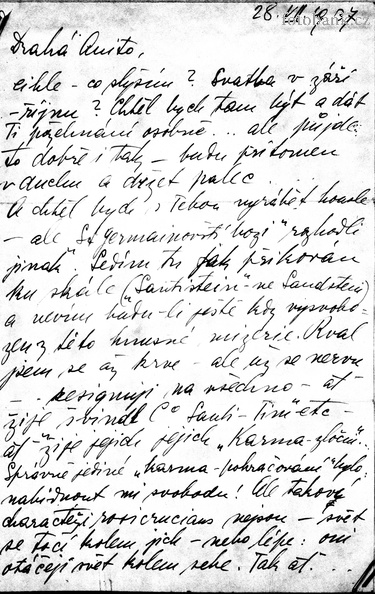 28. VII 1957
Drahá Anito,
eihle - co slyším? Svatba v září
- říjnu? Chtěl bych tam být a dát
Ti požehnání osobně... ale půjde
to dobře i tak - budu přítomen
v duchu a držet palec...
A chtěl bych s Tebou vyrábět housle
- ale "St germainovští bozi" rozhodli
jinak". Sedím tu jak přikován
ku skále ("Santistein" - ne Sandstein)
a nevím budu-li ještě kdy vysvobo-
zen z této hnusné mizerie. Rval
jsem se až krve - ale už se nervu
- . resignuji na všechno - ať
žije švindl Co Santi-Tim etc -
ať žije jejich "Karma-zločin"...
Správně jedině "karma-pokračování" bylo:
nabídnout mi svobodu! Ale takové
charaktery rosicrucians nejsou - svět
se točí kolem jich - nebo lépe: oni
otáčejí svět kolem sebe. Tak ať...